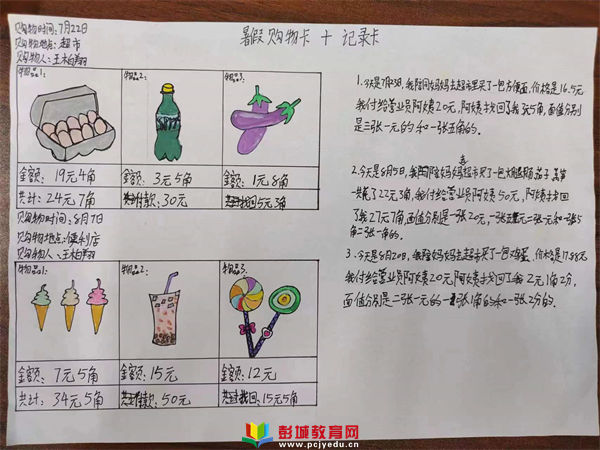 暑假购物卡 + 记录卡
购物时间:7月22日
购物地点:超市
购物人:王柏翔
物品1: 物品2: 物品3:
金额: 19元4角 金额: 3元5角 金额: 1元8角
共计: 24元7角 付款: 30元 找回5元3角
购物时间:8月7日
购物地点:便利店
购物人:王柏翔
物品1: 物品2: 物品3:
金额: 7元5角 金额: 15元 金额: 12元
共计: 34元5角 付款: 50元 找回:15元5角
妈妈去超市里买了一包方便面,价格是16.5元
我付给营业员阿姨20元,阿姨找回了我3元5角,面值分别
是三张一元的和一张五角的。
2.今天是8月5日,我陪妈妈去超市买了一包
一共花了22元3角,我付给营业员阿姨50元,阿姨找回
了我27元7角,面值分别是一张20元,一张五元二张一元和一张5
角二张一角的。
3.今天是8月20日,我陪妈妈去超市买了一包鸡蛋,价格是17.88元
我付给营业员阿姨20元,阿姨找回了我2元1角2分,
面值分别是二张一元的一张1角的和一张2分的.
彭城教育网
www.pcjyedu.cn